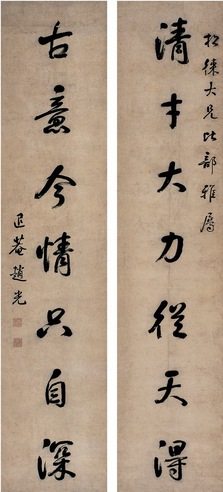 松铼大兄比部雅属
清才大力從天得
古意今情只自深
退菴趙光